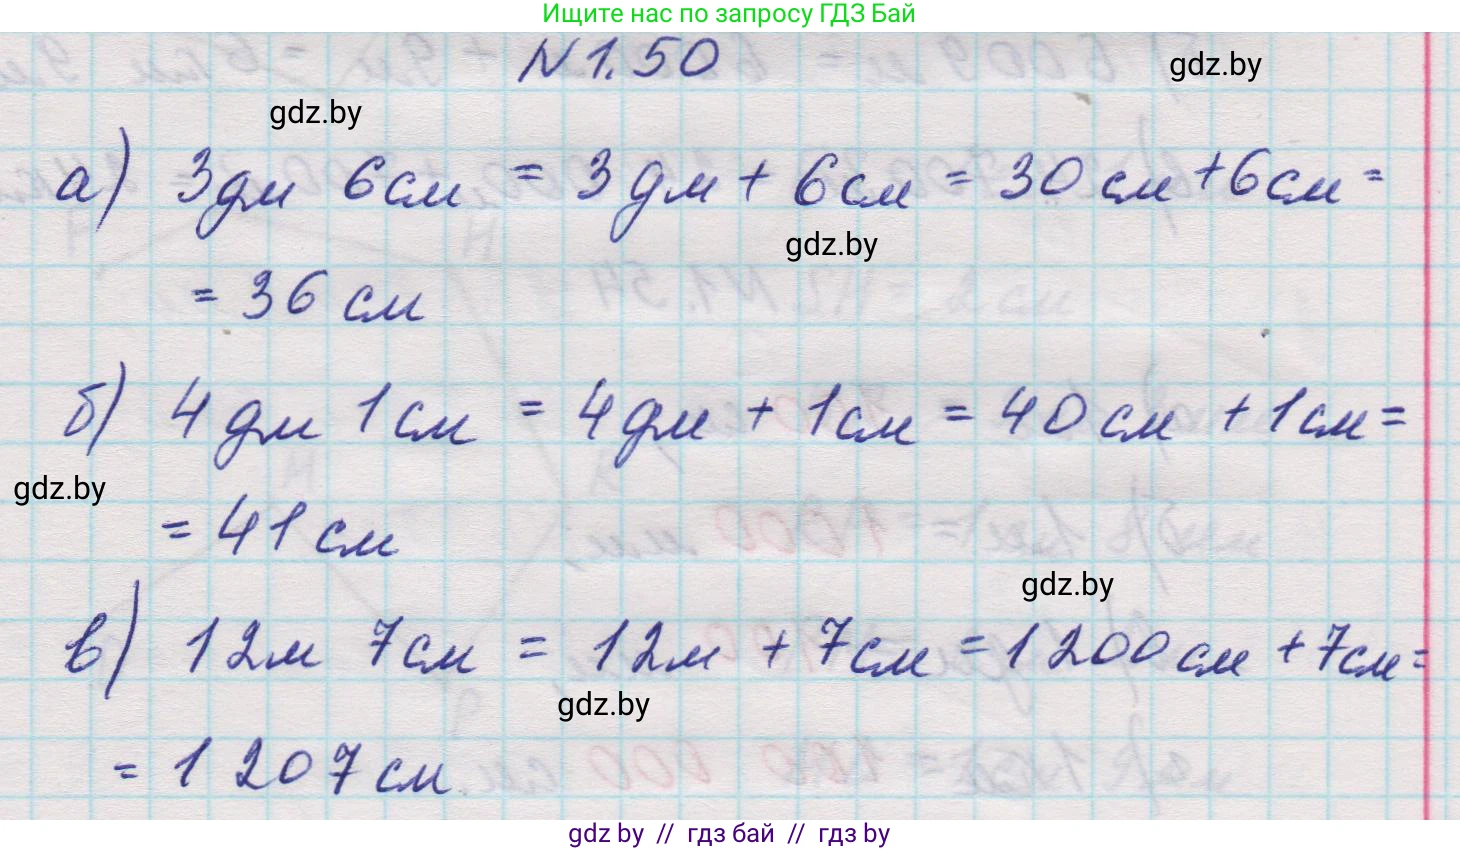 Ищите нас по запросу ГДЗ Бай
N1.50
gdz.by
gdz.by
а) 3дм 6см = 3дм + 6см = 30см + 6см =
gdz.by
= 36 см
б) 4дм 1см = 4дм + 1см = 40см + 1см =
gdz.by
= 41 см
gdz.by
в) 12м 7см = 12м + 7см = 1200см + 7см =
gdz.by
= 1 207 см
gdz by // гдз бай // гдз by